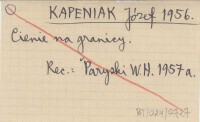 KAPENIAK Józef 1956.
Cienie na granicy.
Rec.: Paryski W.H. 1957a.